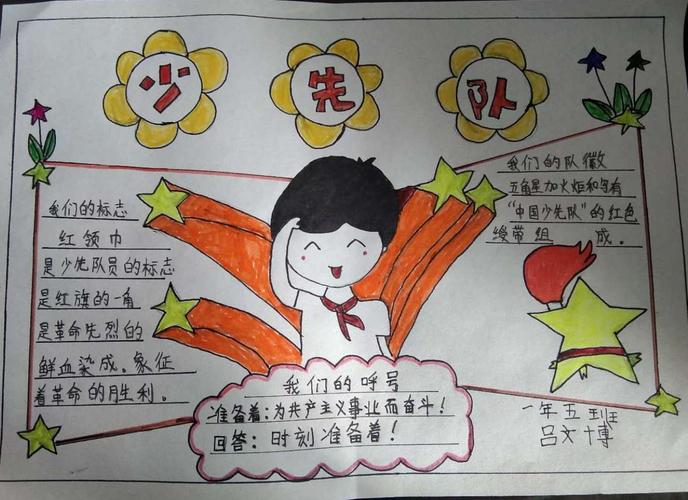 少先队
我们的标志
红领巾
是少先队员的标志
是红旗的一角
是革命先烈的
鲜血染成。象征
着革命的胜利。
我们的队徽
五角星加火炬和写有
“中国少先队”的红色
绶带组 成。
我们的呼号
准备着:为共产主义事业而奋斗!
回答:时刻准备着!
一年五班
吕文博